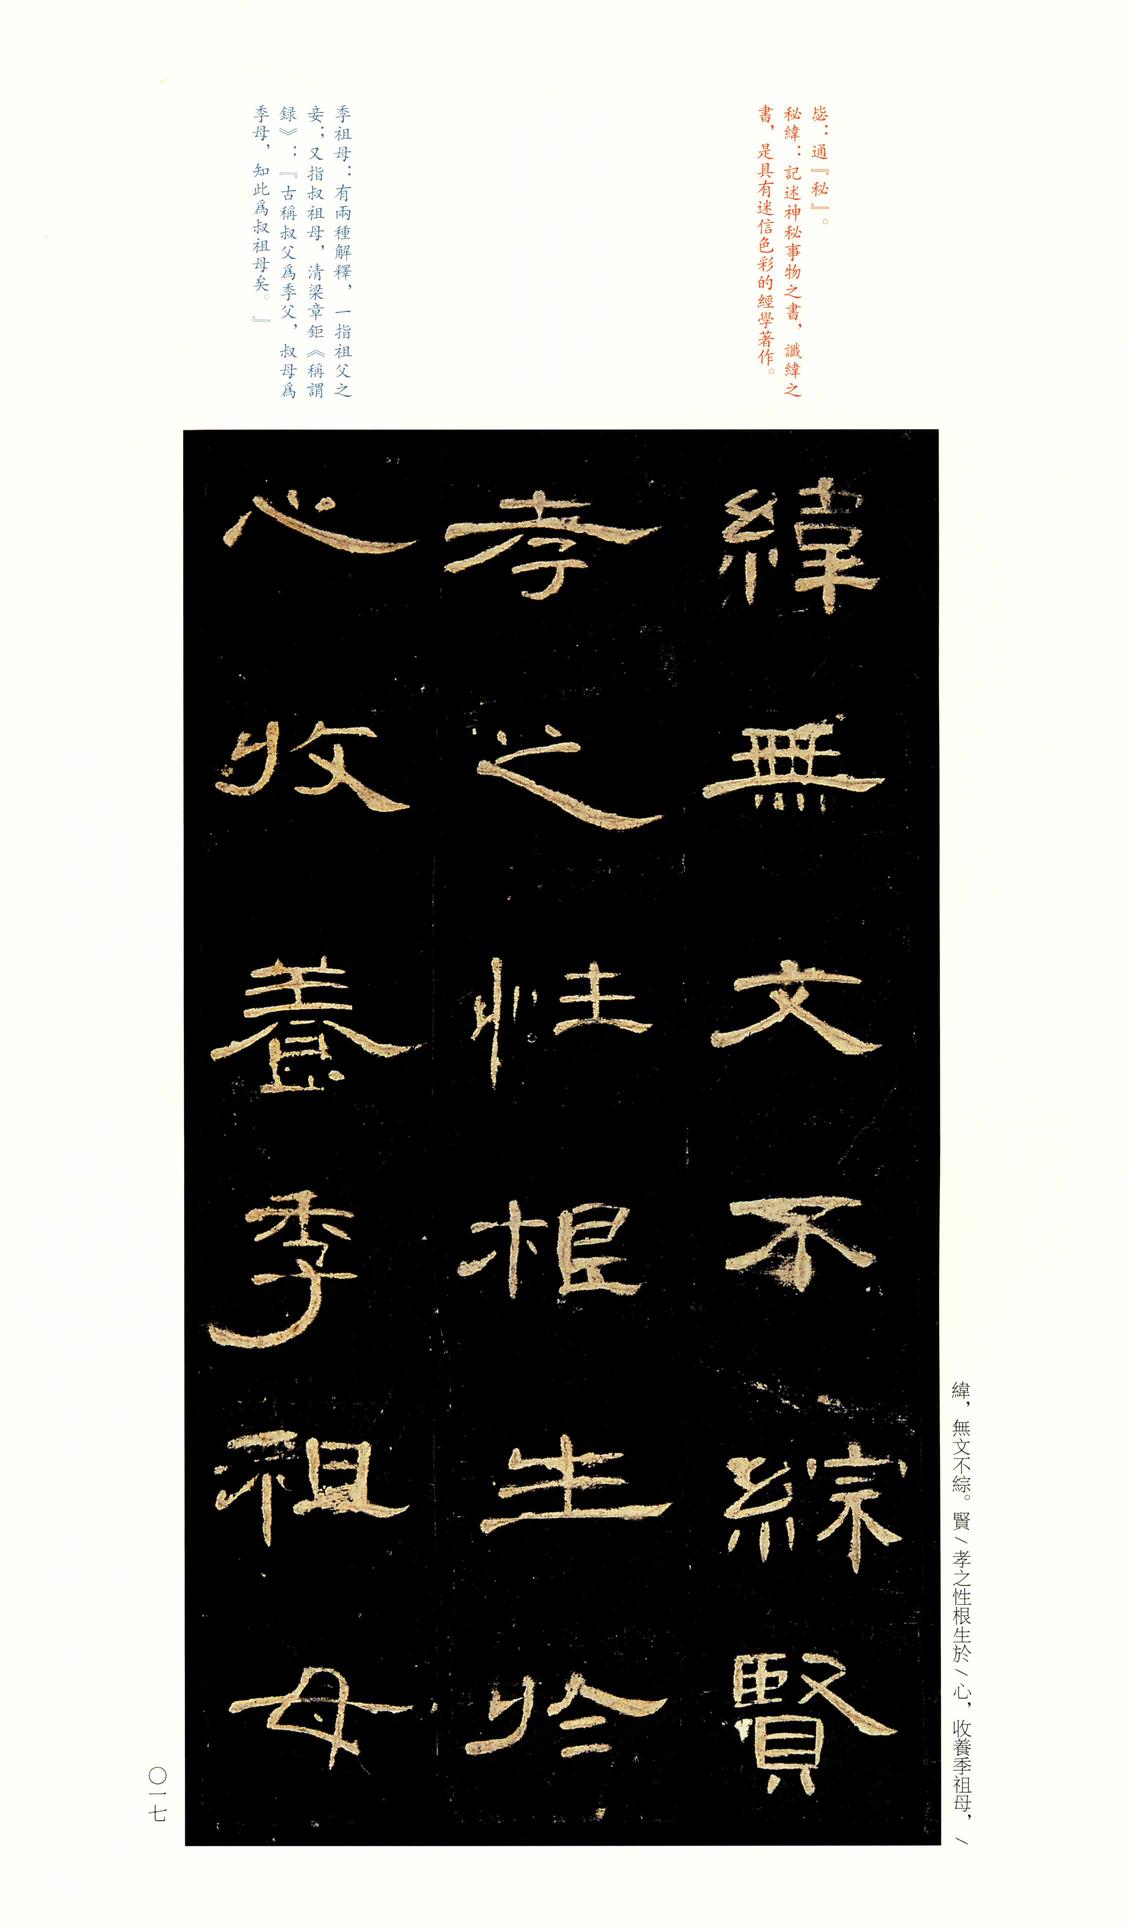 毖：通『秘』。
秘緯：記述神秘事物之書，讖緯之
書，是具有迷信色彩的經學著作。
季祖母：有兩種解釋，一指祖父之
妾；又指叔祖母，清梁章鉅《稱謂
録》：『古稱叔父爲季父，叔母爲
季母，知此爲叔祖母矣。』
緯無文不綜賢
孝之性根生於
心收養季祖母
緯，無文不綜。賢\孝之性根生於\心，收養季祖母，\
〇一七